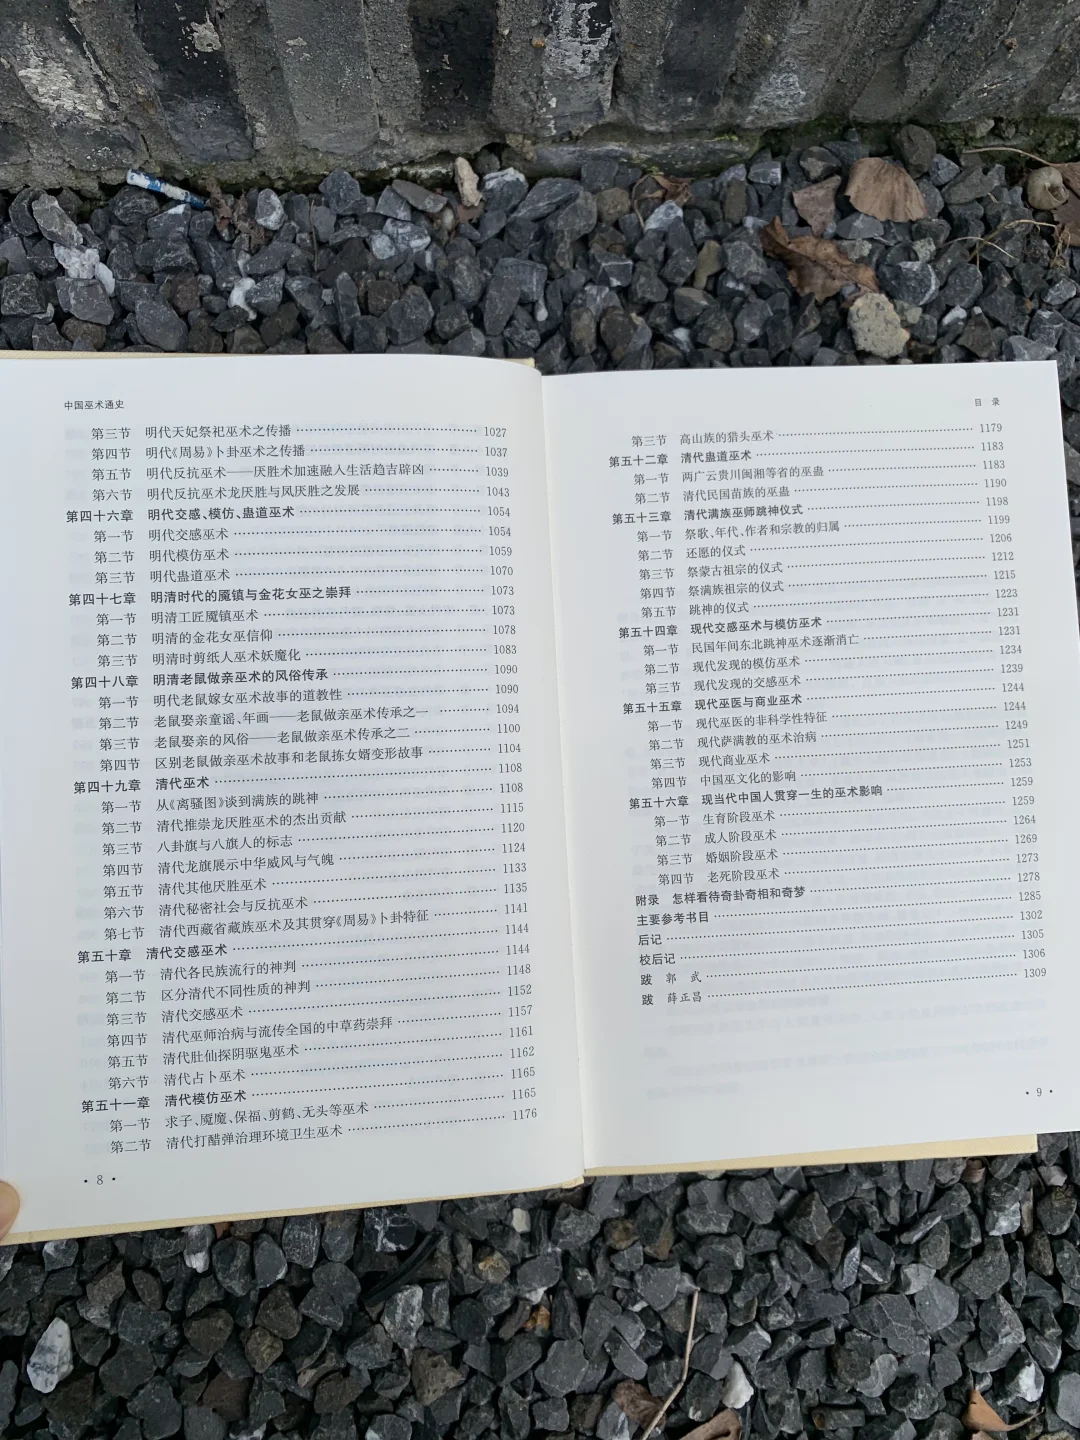 中国巫术通史
第三节 明代天妃祭祀巫术之传播 1027
第四节 明代《周易》卜卦巫术之传播 1037
第五节 明代反抗巫术——厌胜术加速融入生活趋吉辟凶 1039
第六节 明代反抗巫术龙厌胜与风厌胜之发展 1043
第四十六章 明代交感、模仿、蛊道巫术 1054
第一节 明代交感巫术 1054
第二节 明代模仿巫术 1059
第三节 明代蛊道巫术 1070
第四十七章 明清时代的魇镇与金花女巫之崇拜 1073
第一节 明清工匠魇镇巫术 1073
第二节 明清的金花女巫信仰 1078
第三节 明清时剪纸人巫术妖魔化 1083
第四十八章 明清老鼠做亲巫术的风俗传承 1090
第一节 明代老鼠嫁女巫术故事的道教性 1090
第二节 老鼠娶亲童谣、年画——老鼠做亲巫术传承之一 1094
第三节 老鼠娶亲的风俗——老鼠做亲巫术传承之二 1100
第四节 区别老鼠做亲巫术故事和老鼠拣女婿变形故事 1104
第四十九章 清代巫术 1108
第一节 从《离骚图》谈到满族的跳神 1108
第二节 清代推崇龙厌胜巫术的杰出贡献 1115
第三节 八卦旗与八旗人的标志 1120
第四节 清代龙旗展示中华威风与气魄 1124
第五节 清代其他厌胜巫术 1133
第六节 清代秘密社会与反抗巫术 1135
第七节 清代西藏省藏族巫术及其贯穿《周易》卜卦特征 1141
第五十章 清代交感巫术 1144
第一节 清代各民族流行的神判 1144
第二节 区分清代不同性质的神判 1148
第三节 清代交感巫术 1152
第四节 清代巫师治病与流传全国的中草药崇拜 1157
第五节 清代肚仙探阴驱鬼巫术 1161
第六节 清代占卜巫术 1162
第五十一章 清代模仿巫术 1165
第一节 求子、魇魔、保福、剪鹤、无头等巫术 1165
第二节 清代打醋弹治理环境卫生巫术 1176
· 8 ·
目 录
第三节 高山族的猎头巫术 1179
第五十二章 清代蛊道巫术 1183
第一节 两广云贵川闽湘等省的巫蛊 1183
第二节 清代民国苗族的巫蛊 1190
第五十三章 清代满族巫师跳神仪式 1198
第一节 祭歌、年代、作者和宗教的归属 1199
第二节 还愿的仪式 1206
第三节 祭蒙古祖宗的仪式 1212
第四节 祭满族祖宗的仪式 1215
第五节 跳神的仪式 1223
第五十四章 现代交感巫术与模仿巫术 1231
第一节 民国年间东北跳神巫术逐渐消亡 1231
第二节 现代发现的模仿巫术 1234
第三节 现代发现的交感巫术 1239
第五十五章 现代巫医与商业巫术 1244
第一节 现代巫医的非科学性特征 1244
第二节 现代萨满教的巫术治病 1249
第三节 现代商业巫术 1251
第四节 中国巫文化的影响 1253
第五十六章 现当代中国人贯穿一生的巫术影响 1259
第一节 生育阶段巫术 1259
第二节 成人阶段巫术 1264
第三节 婚姻阶段巫术 1269
第四节 老死阶段巫术 1273
附录 怎样看待奇卦奇相和奇梦 1278
主要参考书目 1285
后记 1302
校后记 1305
跋 郭 武 1306
跋 薛正昌 1309
· 9 ·